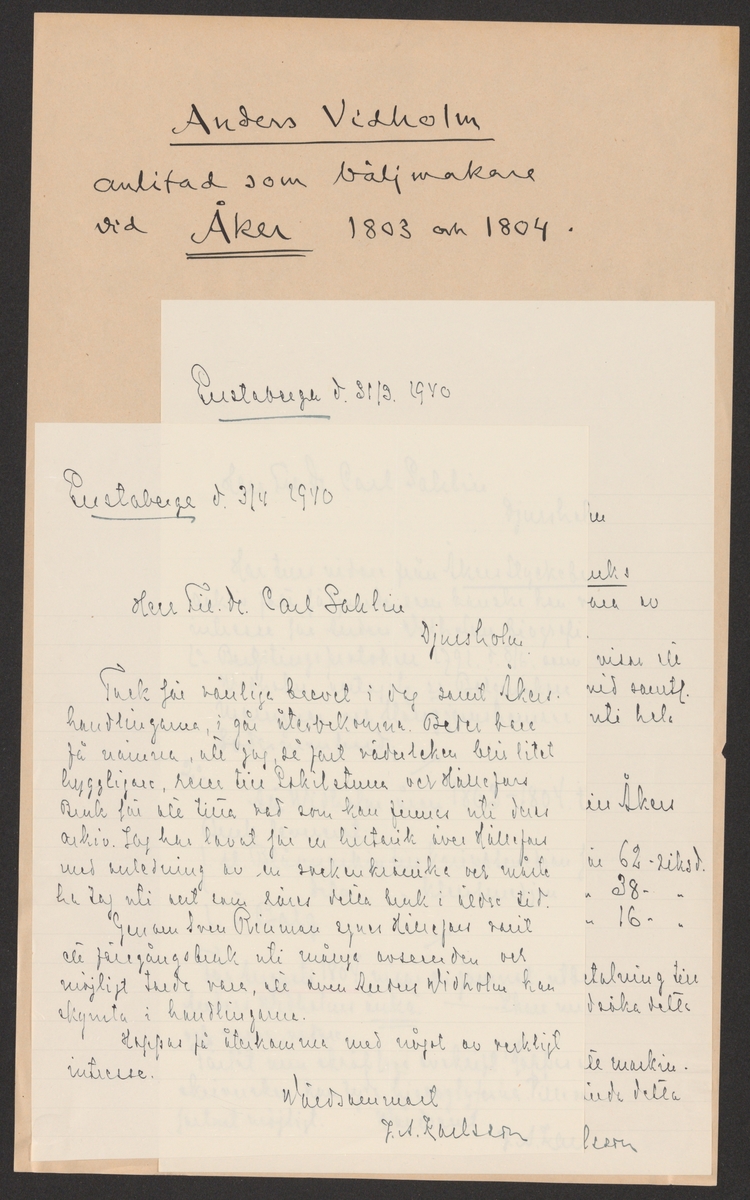 Anders Vidholm
anlitad som bälj makare
vid Åker 1803 och 1804.
d. 31/3. 1940
d. 3/4 1940
Herr Fil. dr. Carl Sahlin
Djursholm
Tack för vänliga brevet i dag samt Åkers-
handlingarna, i går återbekomna. Beder bara
få nämna, att jag, så fort väderleken blir litet
hyggligare, reser till Eskilstuna och Hällefors
Bruk för att titta vad som kan finnas uti dess
arkiv. Jag har lovat för en historik över Hällefors
med anledning av en sockenkrönika och måste
ha tag uti allt som rörer detta bruk i äldre tid.
Genom Sven Rinman synes Hällefors varit
ett föregångsbruk uti många avseenden och
möjligt torde vara, att även Anders Widholm kan
skymta i handlingarna.
Hoppas få återkomma med något av verkligt
intresse.
Värdsammast
J. A. Karlsson
uks
visar att
vid samtl.
uti hela
Åkers
62 - riksd.
" 38 - "
" 16 - "
etalning till
dsöka detta
maskin.
detta
lsson